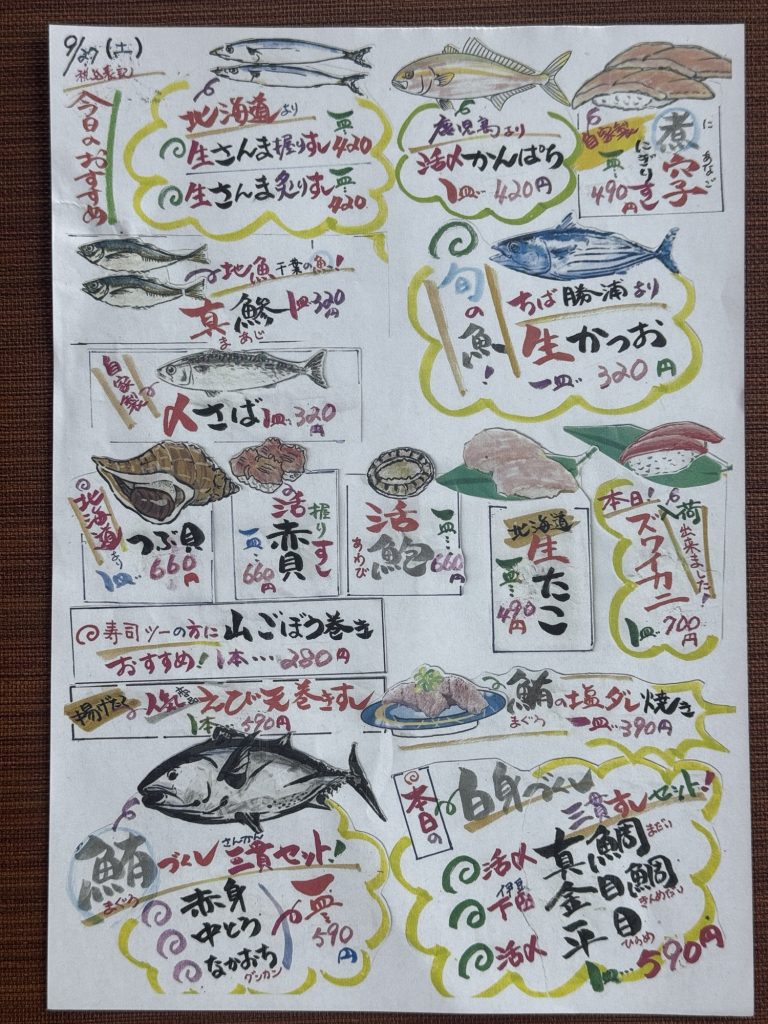 9/27(土)
税込表記
今日のおすすめ
北海道より
生さんま握りすし 一皿…420
生さんま炙りすし 一皿…420
鹿児島より
活〆かんぱち
1皿…420円
自家製
煮穴子
に あなご
にぎりすし
一皿…490円
地魚 千葉の魚!
真鯵 1皿…320円
まあじ
旬の魚!
ちば勝浦より
生かつお
一皿…320円
自家製
〆さば 1皿…320円
北海道より
つぶ貝
1皿…660円
活赤貝
握りすし
一皿…660円
活鮑
あわび
一皿…660円
北海道
生たこ
一皿…490円
本日!
入荷出来ました!
ズワイカニ
1皿…700円
寿司ツーの方に 山ごぼう巻き
おすすめ! 1本…280円
揚げたて 人気 えび天巻きすし
1本…590円
鮪の塩ダレ焼き
まぐろ 一皿…390円
鮪づくし 三貫セット!
まぐろ さんかん
赤身
中とろ
なかおち
グンカン
一皿…590円
本日の
白身づくし
三貫すしセット!
活〆 真鯛 まだい
伊豆下田 金目鯛 きんめだい
活〆 平目 ひらめ
1皿…590円